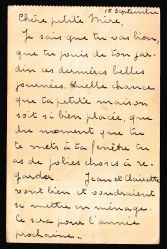 15 Septembre
Chère petite Mère,
Je sais que tu vas bien,
que tu jouis de ton jar-
din ces dernières belles
journées. Quelle chance
que ta petite maison
soit si bien placée, que
du moment que tu
te mets à ta fenêtre tu
as de jolies choses à re-
garder. Jean et Claudette
vont bien et voudraient
se mettre en ménage.
Ce sera pour l'année
prochaine.